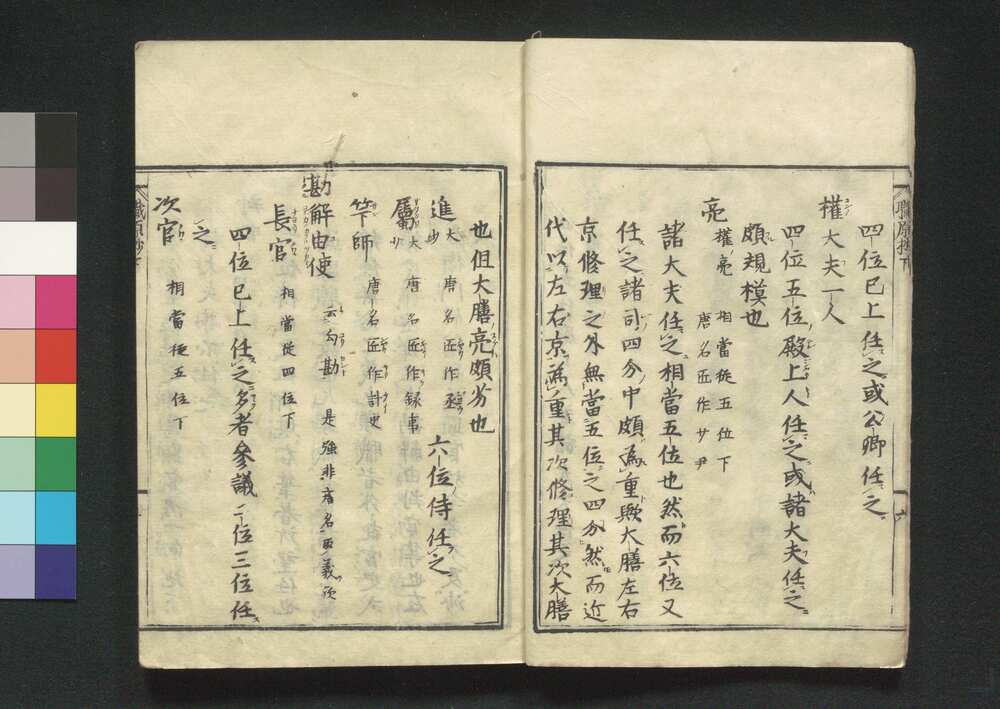 四位已上任之或公卿任之
權大夫一人
四位五位殿上人任之或諸大夫任之
頗規模也
亮 權亮 相當從五位下
唐名匠作少尹
諸大夫任之相當五位也然而六位又
任之諸司四分中頗為重歟大膳左右
京修理之外無當五位之四分然而近
代以左右京為重其次修理其次大膳
也但大膳亮頗劣也
進 大少 唐名匠作丞 六位侍任之
屬 大少 唐名匠作録事
筭師 唐名匠作計史
勘解由使 云勾勘 是強非唐名取義欤
長官 相當從四位下
四位已上任之多者參議二位三位任
之
次官 相當從五位下
職原抄下